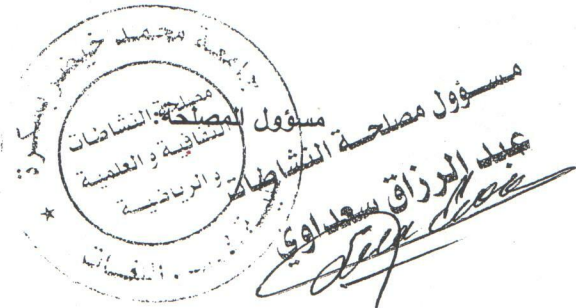 جامعة محمد خيضر بسكرة
مصلحة النشاطات
الثقافية و العلمية
و الرياضية
مسؤول المصلحة:
مسؤول مصلحة النشاطات
عبد الرزاق سعداوي